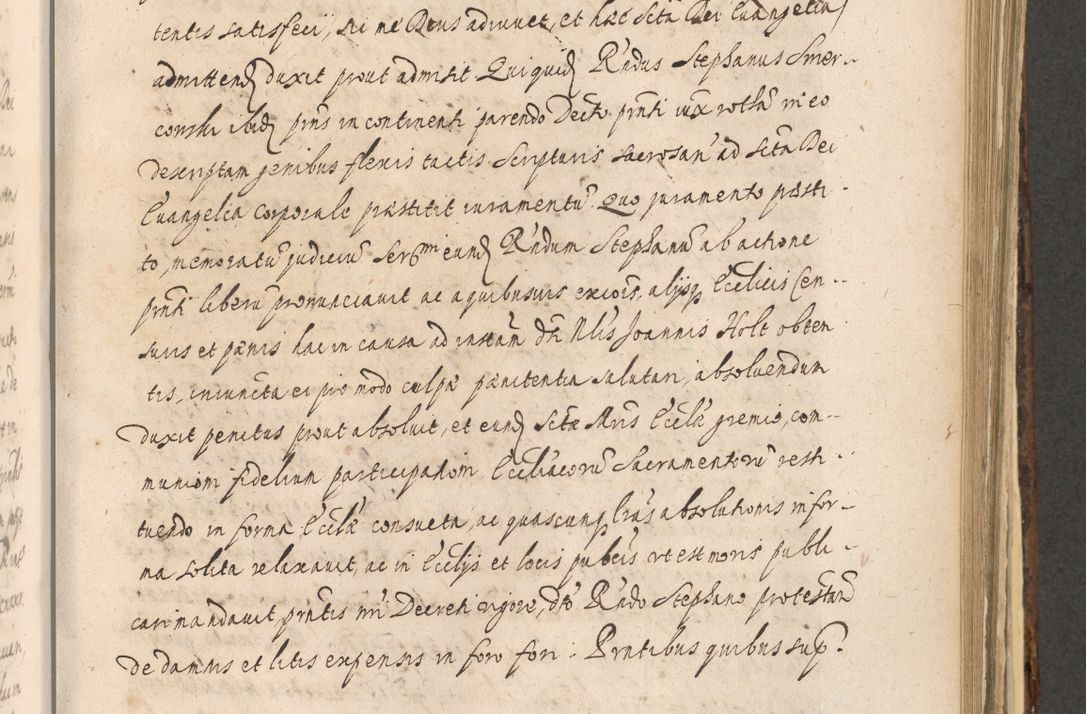 tentis satisfeci, sic me Deus adiuvet, et haec scta Dei Evangelia
admittend duxit prout admisit Quiquid Rndus Stephanus Smer-
conski ibid prns in continenti parendo Decto prnti iux rotham in eo
descriptam genibus flexis tactis Scripturis sacrosan ad scta Dei
Evangelia corporale praestitit iuramentu Quo juramento praesti-
to, memoratu judiciu Serbmi eund Rndum Stephanu ab actione
prnti liberu pronunciavit ac a quibusvis excois, alijsq Ecclicis Cen-
suris et paenis hac in causa ad instam dni Nlis Joannis Holt obten
tis, iniuncta ei pro modo culpae paenitentia salutari, absolvendum
duxit penitus prout absolvit, et eund sctae Mris Ecclae gremio, com-
munioni fidelium participationi Eccliacoru Sacramentoru resti-
tuendo in forma Ecclae consueta, ac quascunq lras absolutionis in for-
ma solita relaxavit, ac in Ecclijs et locis publcis ut est moris publi-
cari mandavit, prntis sui Decreti vigore, dto Rndo Stephano protestan
de damnis et litis expensis in foro fori. Prntibus quibus sup.